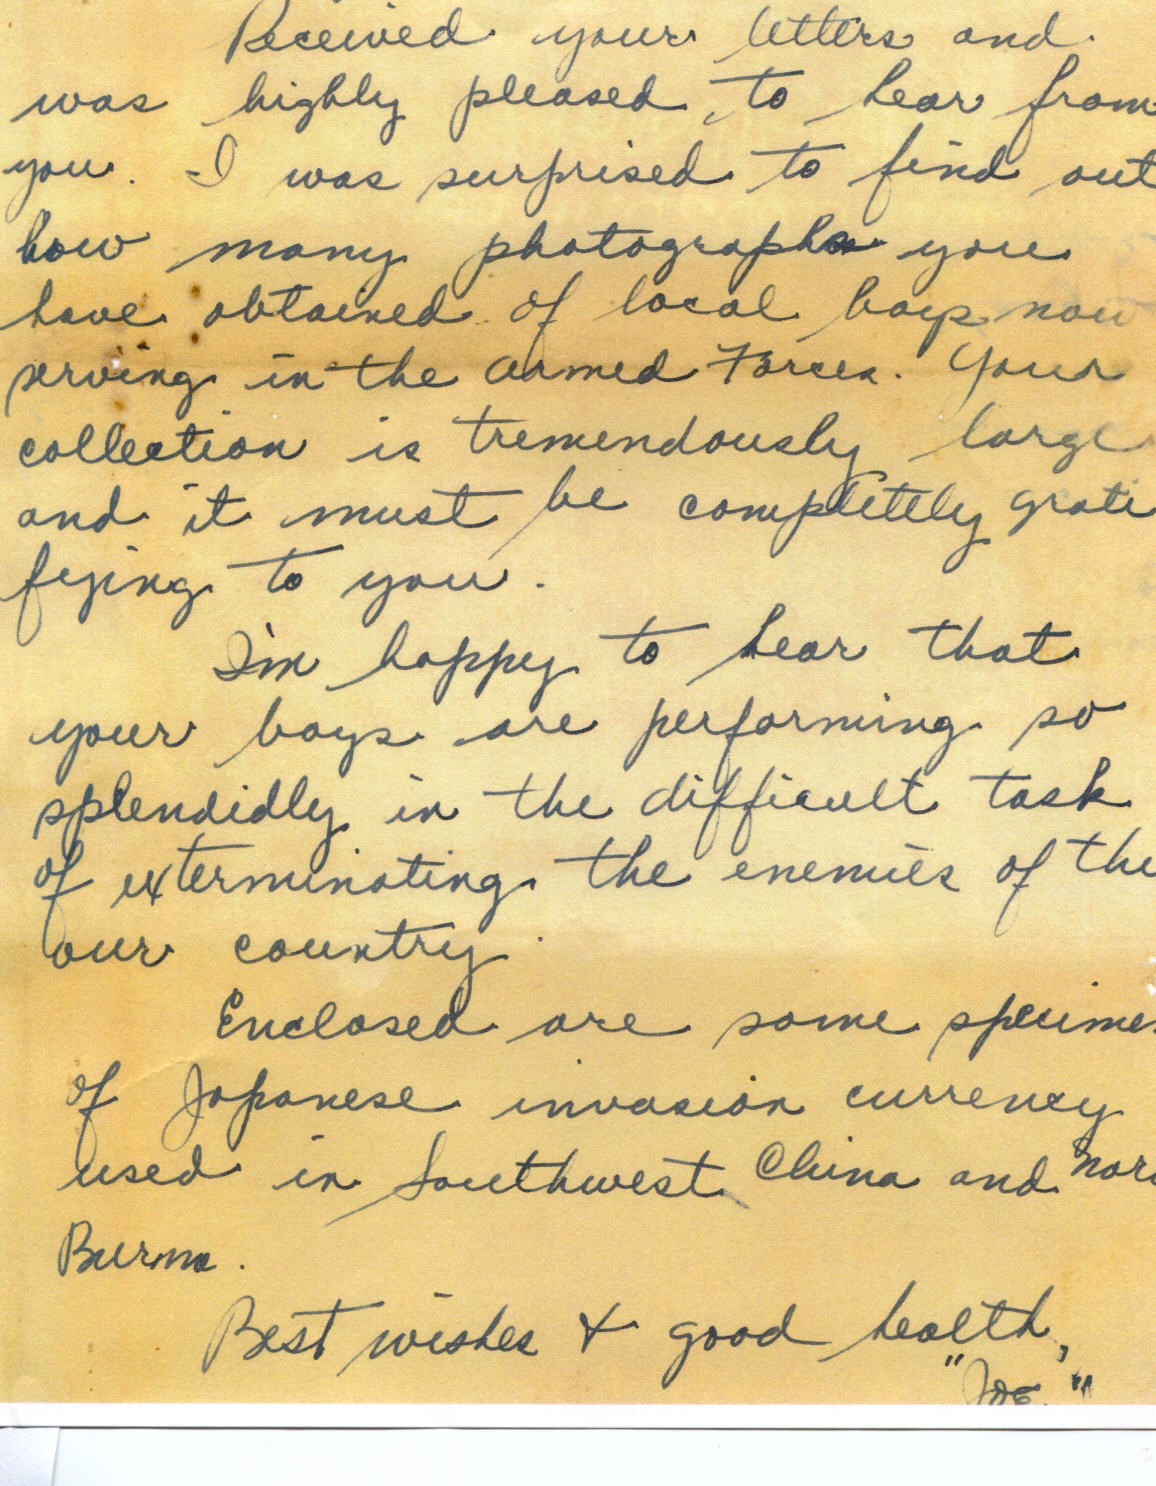 Received your letters and
was highly pleased to hear from
you. I was surprised to find out
how many photographs you
have obtained of local boys now
serving in the armed Forces. Your
collection is tremendously large
and it must be completely grati
fying to you.
I'm happy to hear that
your boys are performing so
splendidly in the difficult task
of exterminating the enemies of the
our country.
Enclosed are some specimen
of Japanese invasion currency
used in Southwest China and nor
Burma.
Best wishes & good health,
"Joe"